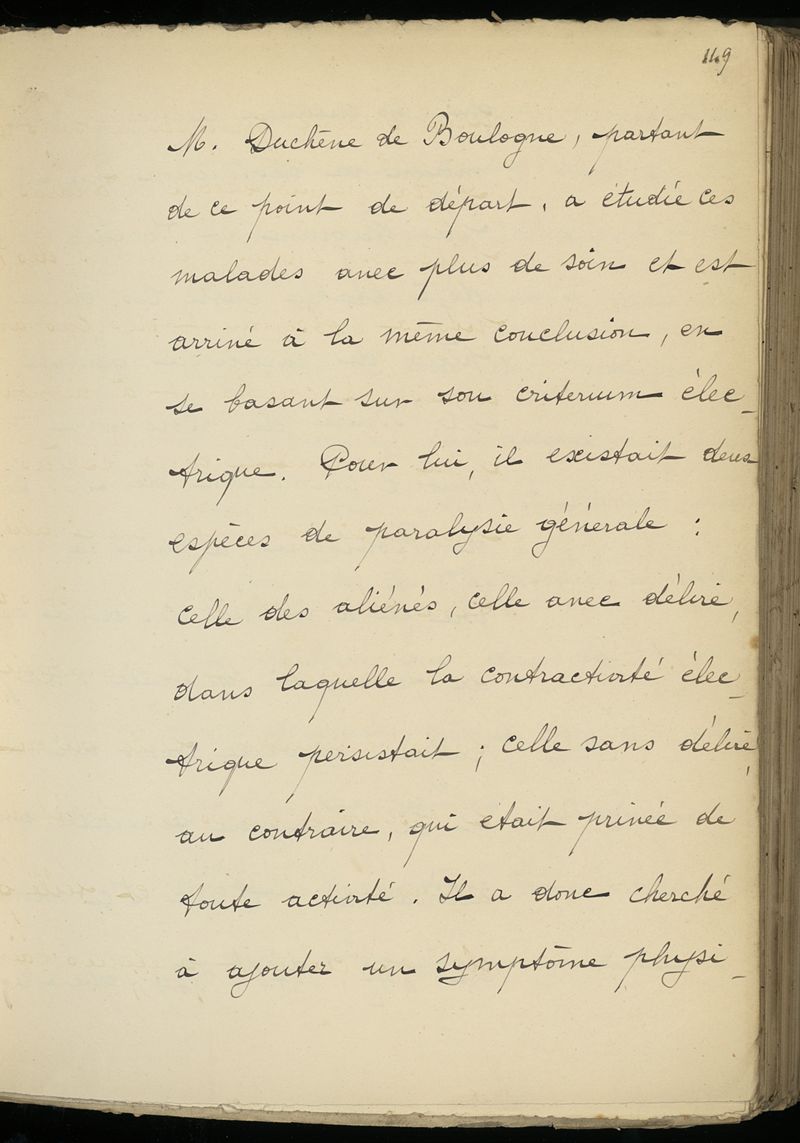 149
M. Duchêne de Boulogne, partant
de ce point de départ, a étudié ces
malades avec plus de soin et est
arrivé à la même conclusion, en
se basant sur son criterium élec-
trique. Pour lui, il existait deux
espèces de paralysie générale :
celle des aliénés, celle avec délire,
dans laquelle la contractivité élec-
trique persistait ; celle sans délire,
au contraire, qui était privée de
toute activité. Il a donc cherché
à ajouter un symptôme physi-